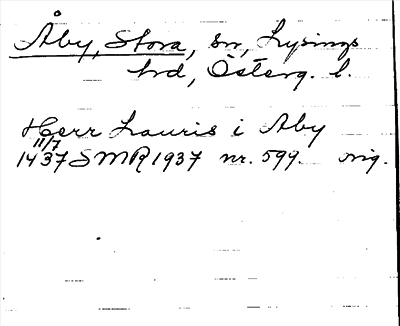 Åby, Stora, sn, Lysings
hd, Österg. l.
Herr Lauris i Aby
11/7
1437 SMR 1937 nr. 599. orig.